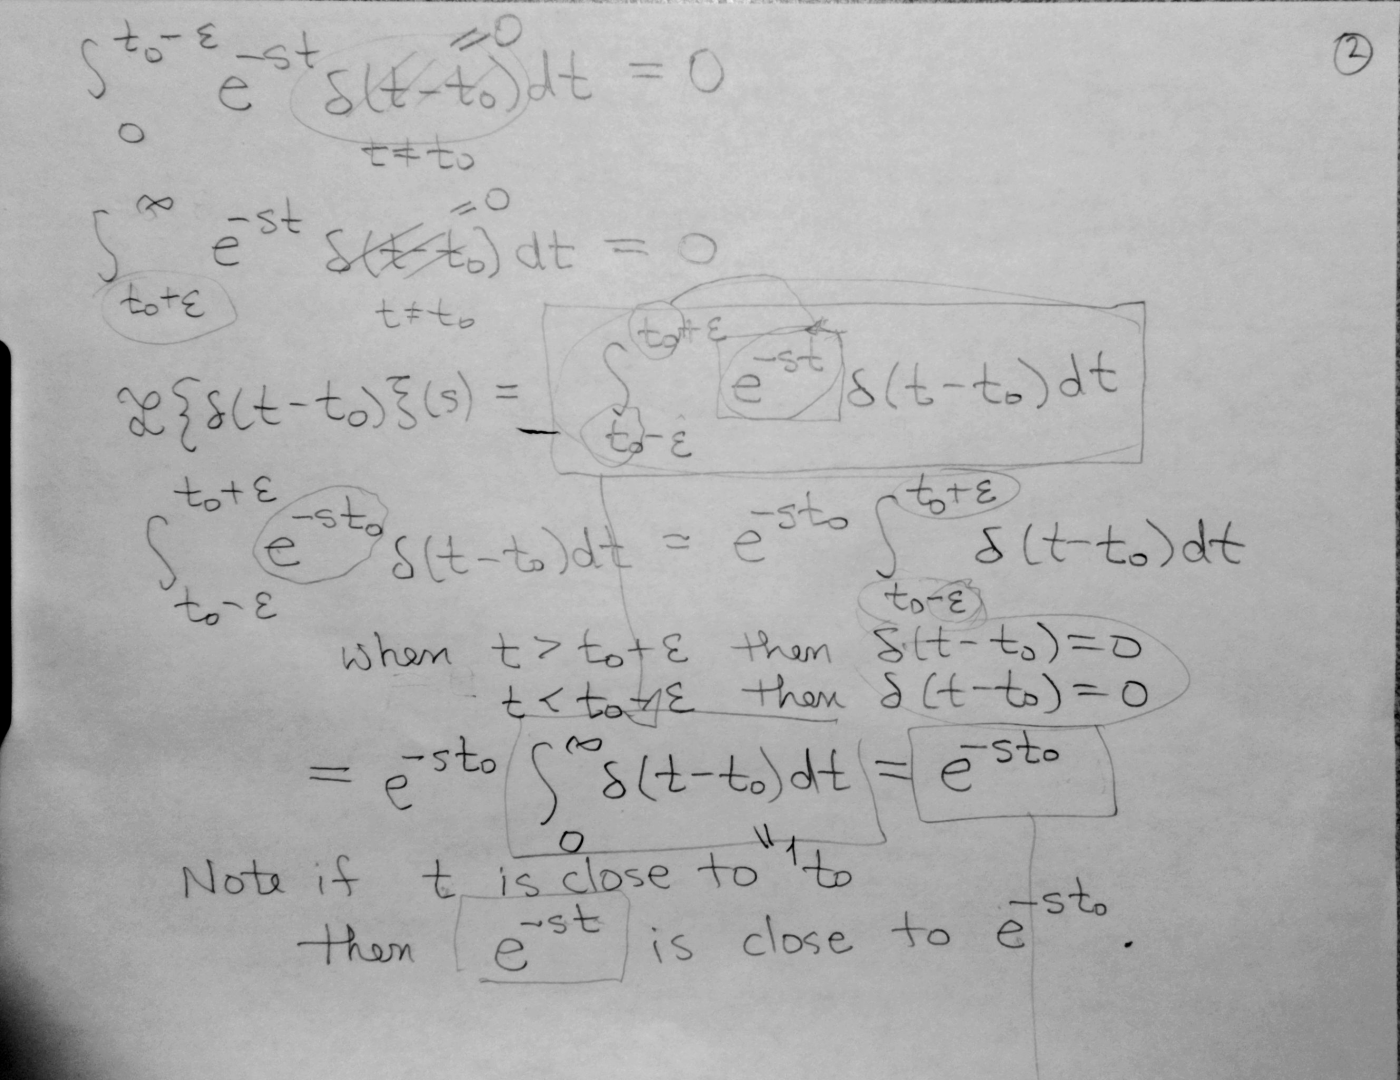 ②
∫_0^{t₀-ε} e^{-st} δ(t-t₀) dt = 0
=0
t≠t₀
∫_{t₀+ε}^∞ e^{-st} δ(t-t₀) dt = 0
=0
t≠t₀
ℒ{δ(t-t₀)}(s) = ∫_{t₀-ε}^{t₀+ε} e^{-st} δ(t-t₀) dt
∫_{t₀-ε}^{t₀+ε} e^{-st₀} δ(t-t₀) dt = e^{-st₀} ∫_{t₀-ε}^{t₀+ε} δ(t-t₀) dt
when t > t₀+ε then δ(t-t₀) = 0
t < t₀-ε then δ(t-t₀) = 0
= e^{-st₀} ∫_0^∞ δ(t-t₀) dt = e^{-st₀}
=1
Note if t is close to t₀
then e^{-st} is close to e^{-st₀}.